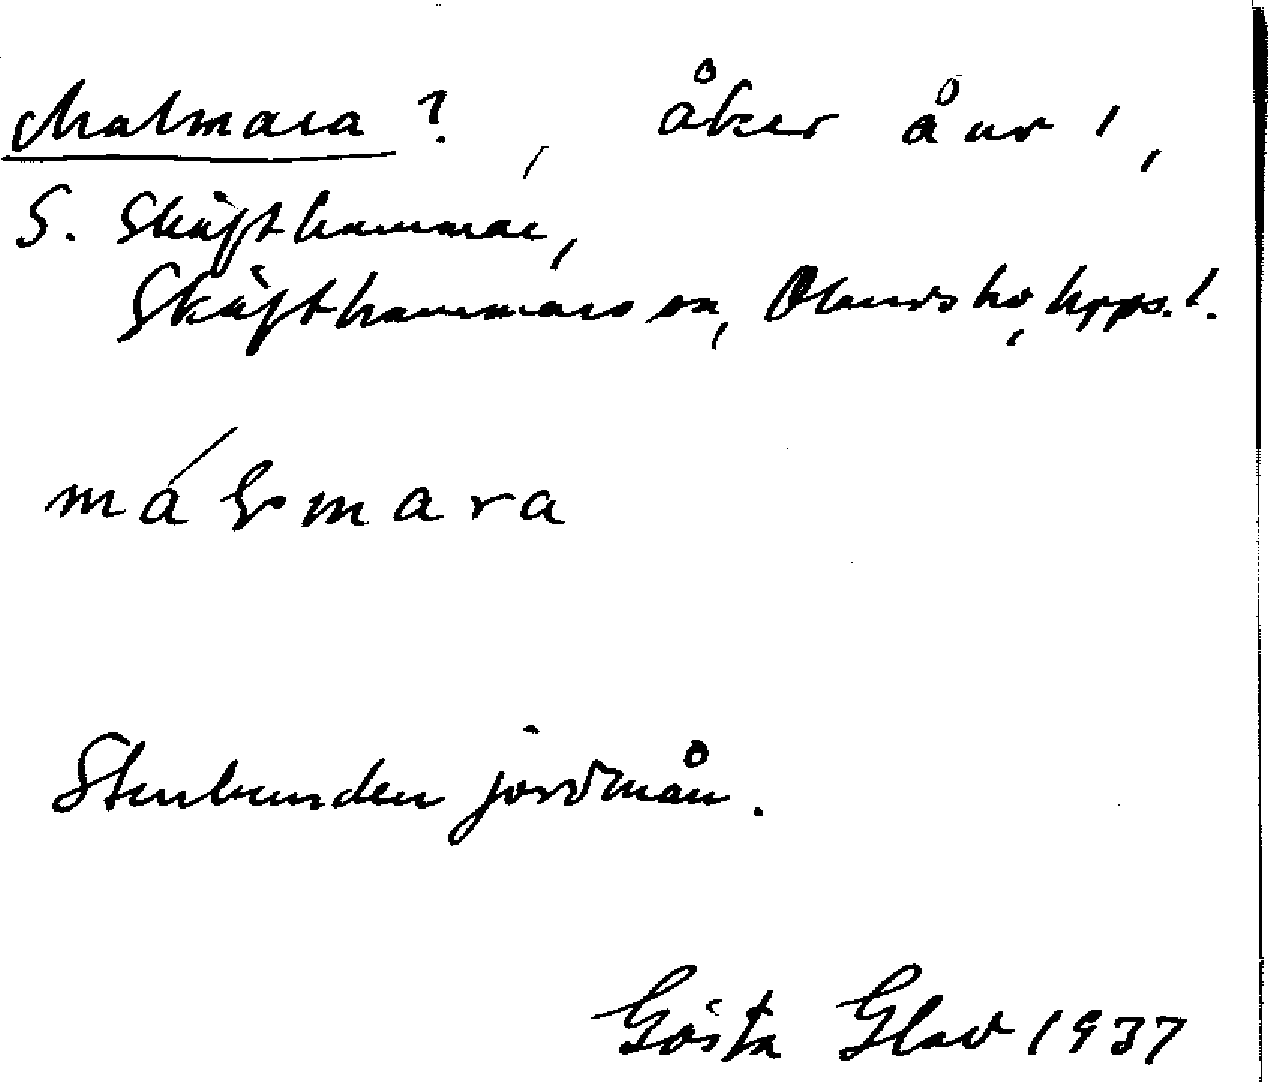 Malmara ?, åker å ur!,
S. Skäfthammar,
Skäfthammars sn, Olands hd, Upps. l.
málmara
Stenbunden jordmån.
Gösta Glad 1937